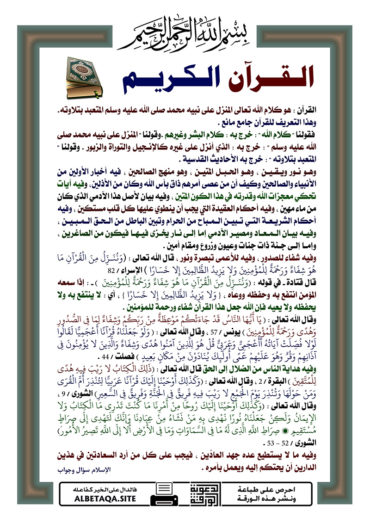 بسم الله الرحمن الرحيم
القرآن الكريم
القرآن : هو كلام الله تعالى المنزل على نبيه محمد صلى الله عليه وسلم المتعبد بتلاوته .
وهذا التعريف للقرآن جامع مانع .
فقولنا - كلام الله - : خرج به : كلام البشر وغيرهم .وقولنا - المنزل على نبيه محمد صلى
الله عليه وسلم - : خرج به : الذي أنزل على غيره كالإنجيل والتوراة والزبور . وقولنا -
المتعبد بتلاوته - : خرج به الأحاديث القدسية .
وهو نور ويقين ، وهو الحبل المتين ، وهو منهج الصالحين ، فيه أخبار الأولين من
الأنبياء والصالحين وكيف أن من عصى أمرهم ذاق بأس الله وكان من الأذلين. وفيه آيات
تحكي معجزات الله وقدرته في هذا الكون المتين . وفيه بيان لأصل هذا الآدمي الذي كان
من ماء مهين . وفيه أحكام العقيدة التي يجب أن ينطوي عليها كل قلب مستكين . وفيه
أحكام الشريعة التي تبين المباح من الحرام وتبين الباطل من الحق المبين .
وفيه بيان المعاد ومصير الآدمي إما إلى نار يخزى فيها فيكون من الصاغرين .
وإما إلى جنة ذات جنات وعيون وزروع ومقام أمين .
وفيه شفاء للصدور . وفيه للأعمى تبصرة ونور . قال الله تعالى : (وَنُنَزِّلُ مِنَ الْقُرْآنِ مَا
هُوَ شِفَاءٌ وَرَحْمَةٌ لِلْمُؤْمِنِينَ وَلَا يَزِيدُ الظَّالِمِينَ إِلَّا خَسَارًا ) الإسراء / 82
قال قتادة ـ في قوله : (وَنُنَزِّلُ مِنَ الْقُرْآنِ مَا هُوَ شِفَاءٌ وَرَحْمَةٌ لِلْمُؤْمِنِينَ) ـ : إذا سمعه
المؤمن انتفع به وحفظه ووعاه . ( وَلَا يَزِيدُ الظَّالِمِينَ إِلَّا خَسَارًا ) . أي : لا ينتفع به ولا
يحفظه ولا يعيه فإن الله جعل هذا القرآن شفاء ورحمة للمؤمنين .
وقال الله تعالى : ( يَا أَيُّهَا النَّاسُ قَدْ جَاءَتْكُمْ مَوْعِظَةٌ مِنْ رَبِّكُمْ وَشِفَاءٌ لِمَا فِي الصُّدُورِ
وَهُدًى وَرَحْمَةٌ لِلْمُؤْمِنِينَ ) يونس / 57 . وقال الله تعالى : ( وَلَوْ جَعَلْنَاهُ قُرْآنًا أَعْجَمِيًّا لَقَالُوا
لَوْلَا فُصِّلَتْ آيَاتُهُ أَأَعْجَمِيٌّ وَعَرَبِيٌّ قُلْ هُوَ لِلَّذِينَ آمَنُوا هُدًى وَشِفَاءٌ وَالَّذِينَ لَا يُؤْمِنُونَ فِي
آذَانِهِمْ وَقْرٌ وَهُوَ عَلَيْهِمْ عَمًى أُولَئِكَ يُنَادَوْنَ مِنْ مَكَانٍ بَعِيدٍ ) فصلت / 44 .
وفيه هداية الناس من الضلال إلى الحق قال الله تعالى : (ذَلِكَ الْكِتَابُ لَا رَيْبَ فِيهِ هُدًى
لِلْمُتَّقِينَ ) البقرة / 2 . وقال الله تعالى : (وَكَذَلِكَ أَوْحَيْنَا إِلَيْكَ قُرْآنًا عَرَبِيًّا لِتُنْذِرَ أُمَّ الْقُرَى
وَمَنْ حَوْلَهَا وَتُنْذِرَ يَوْمَ الْجَمْعِ لَا رَيْبَ فِيهِ فَرِيقٌ فِي الْجَنَّةِ وَفَرِيقٌ فِي السَّعِيرِ) الشورى / 7 .
وقال الله تعالى : (وَكَذَلِكَ أَوْحَيْنَا إِلَيْكَ رُوحًا مِنْ أَمْرِنَا مَا كُنْتَ تَدْرِي مَا الْكِتَابُ وَلَا
الْإِيمَانُ وَلَكِنْ جَعَلْنَاهُ نُورًا نَهْدِي بِهِ مَنْ نَشَاءُ مِنْ عِبَادِنَا وَإِنَّكَ لَتَهْدِي إِلَى صِرَاطٍ
مُسْتَقِيمٍ * صِرَاطِ اللَّهِ الَّذِي لَهُ مَا فِي السَّمَاوَاتِ وَمَا فِي الْأَرْضِ أَلَا إِلَى اللَّهِ تَصِيرُ الْأُمُورُ)
الشورى / 52 – 53 .
وفيه ما لا يستطيع عده جهد العادين . فيجب على كل من أراد السعادتين في هذين
الدارين أن يحتكم إليه ويعمل بأمره .
الإسلام سؤال وجواب
احرص على طباعة
ونشر هذه الورقة
الدعوية
الورقة
فالدال على الخير كفاعله
ALBETAQA.SITE